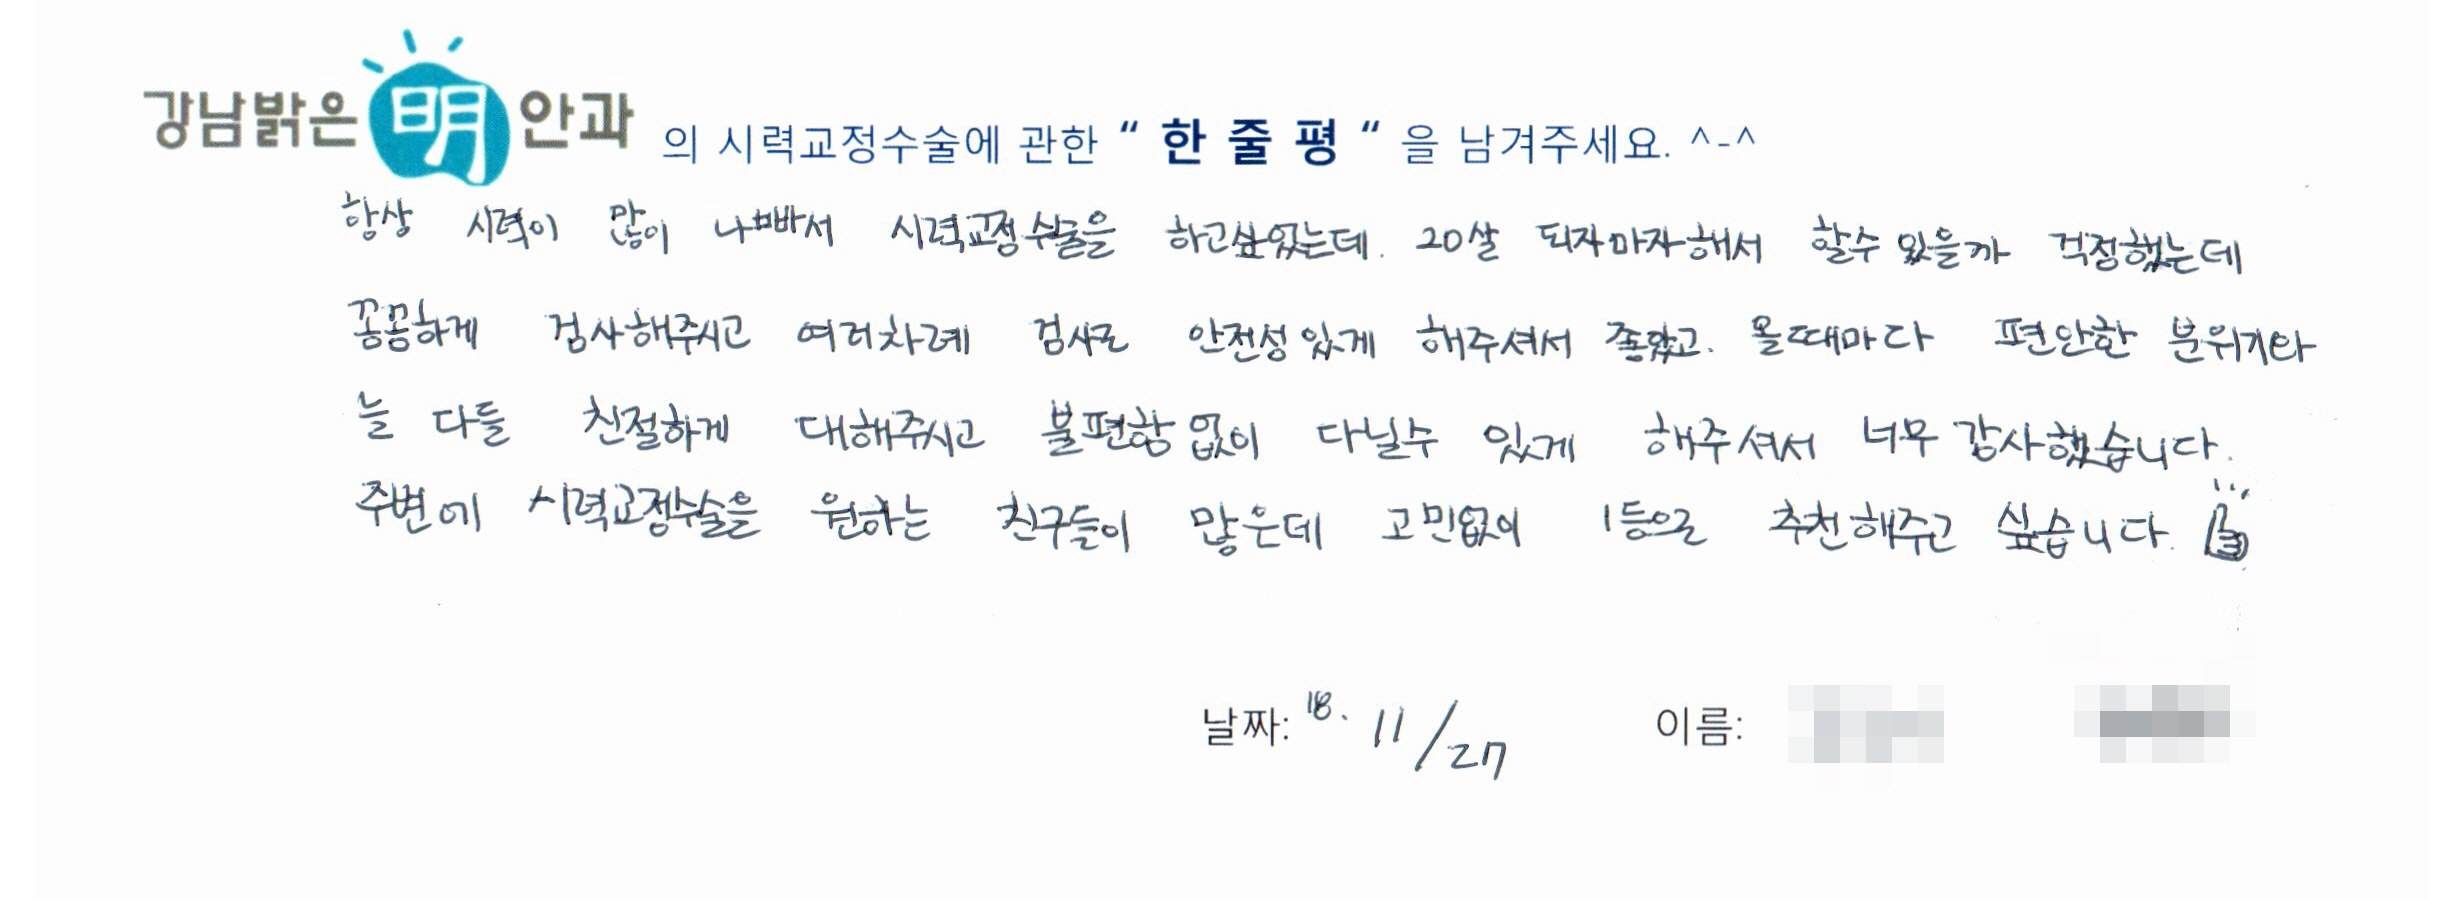 강남밝은 明 안과 의 시력교정수술에 관한 “ 한 줄 평 “ 을 남겨주세요. ^-^
항상 시력이 많이 나빠서 시력교정수술을 하고싶었는데. 20살 되자마자해서 할수 있을까 걱정했는데
꼼꼼하게 검사해주시고 여러차례 검사로 안전성있게 해주셔서 좋았고. 올때마다 편안한 분위기와
늘 다들 친절하게 대해주시고 불편함 없이 다닐수 있게 해주셔서 너무 감사했습니다.
주변에 시력교정수술을 원하는 친구들이 많은데 고민없이 1등으로 추천해주고 싶습니다.
날짜: 18. 11/27 이름: